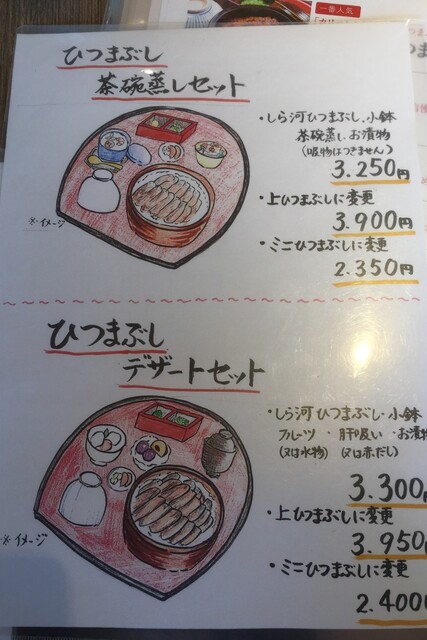 一番人気
ひつまぶし
茶碗蒸しセット
・しら河ひつまぶし、小鉢
茶碗蒸し、お漬物
(吸物はつきません)
3.250円
・上ひつまぶしに変更
3.900円
・ミニひつまぶしに変更
2.350円
※イメージ
ひつまぶし
デザートセット
・しら河ひつまぶし・小鉢
フルーツ・肝吸い・お漬物
(又は水物) (又は赤だし)
3.300円
・上ひつまぶしに変更
3.950円
・ミニひつまぶしに変更
2.400円
※イメージ